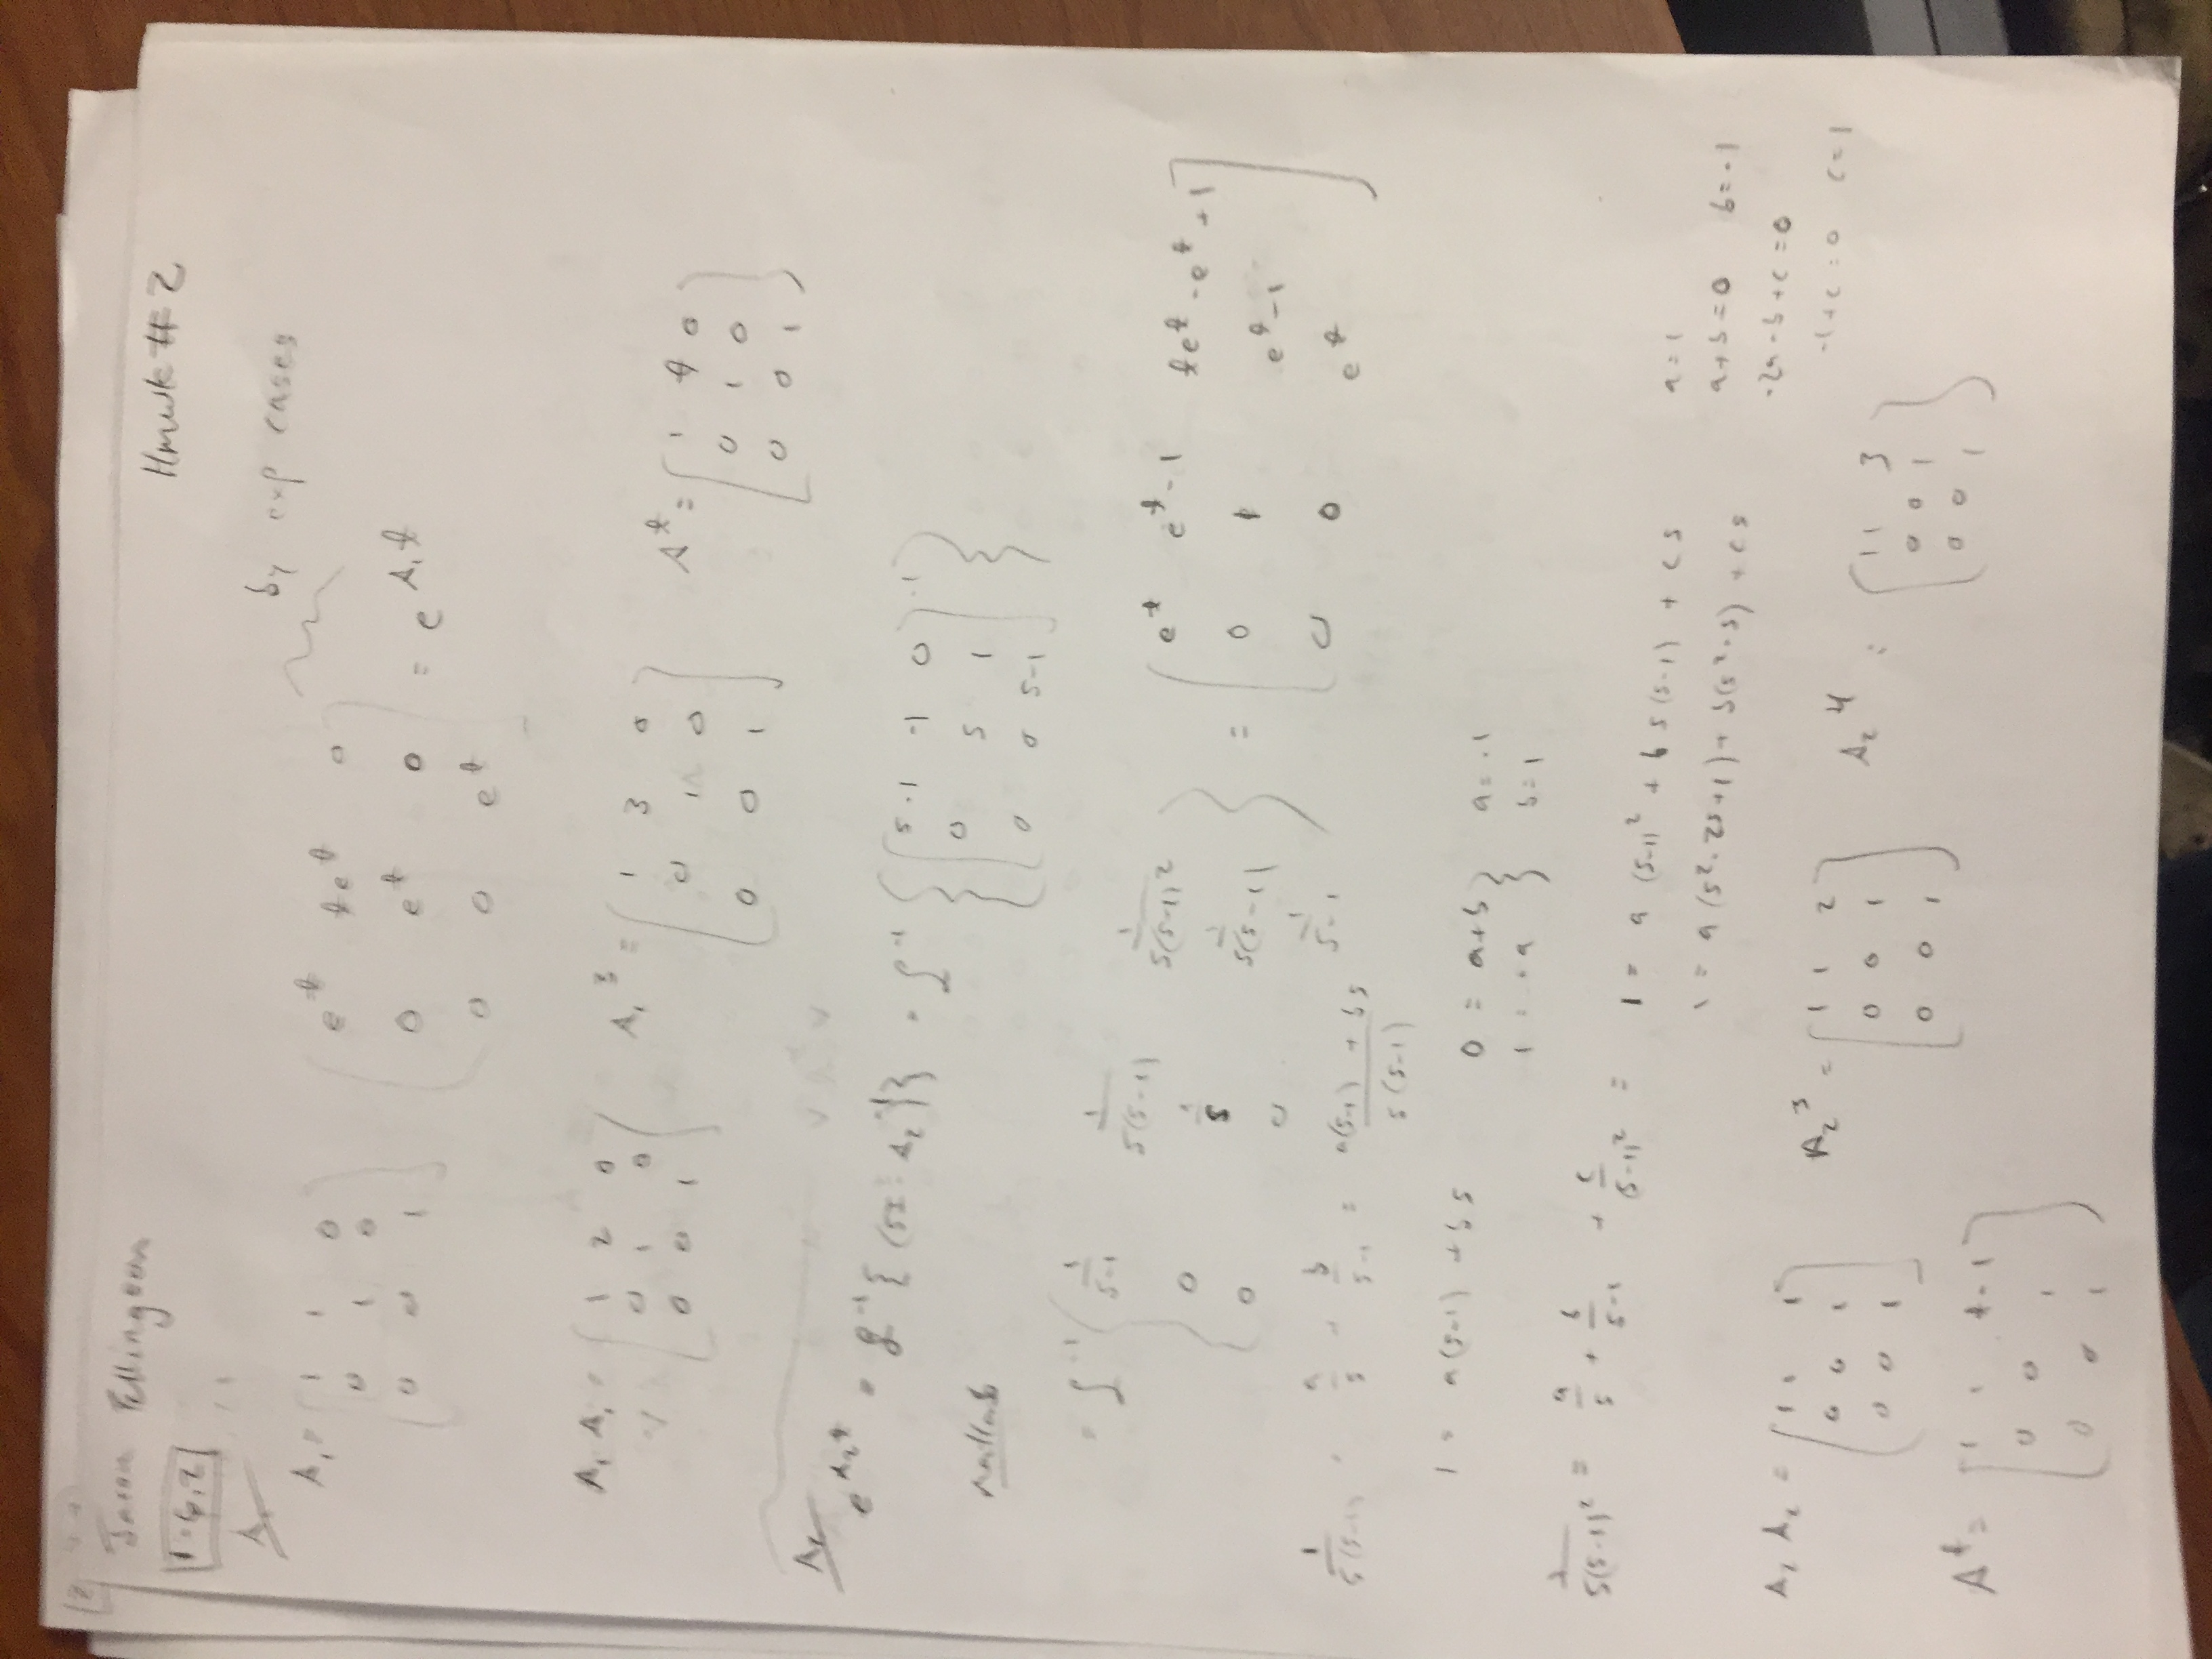 Hmwk #2
1.6.2
A₁
by exp cases
A₁ = [1 1 0; 0 1 0; 0 0 1] [e^t te^t 0; 0 e^t 0; 0 0 e^t] = e^{A₁t}
A₁A₁ = [1 2 0; 0 1 0; 0 0 1] A₁³ = [1 3 0; 0 1 0; 0 0 1] A^t = [1 t 0; 0 1 0; 0 0 1]
A₂
e^{A₂t} = ℒ⁻¹{(sI - A₂)⁻¹} = ℒ⁻¹{[s-1 -1 0; 0 s 1; 0 0 s-1]⁻¹}
Matlab
= ℒ⁻¹{1/(s-1) 1/(s(s-1)) 1/(s(s-1)²); 0 1/s 1/(s(s-1)); 0 0 1/(s-1)} = [e^t e^t-1 te^t-e^t+1; 0 1 e^t-1; 0 0 e^t]
1/(s(s-1)) = a/s + b/(s-1) = (a(s-1) + bs)/(s(s-1))
1 = a(s-1) + bs 0 = a+b 1 = -a } a = -1 b = 1
1/(s(s-1)²) = a/s + b/(s-1) + c/(s-1)² = 1 = a(s-1)² + bs(s-1) + cs a = 1
1 = a(s²-2s+1) + b(s²-s) + cs a+b=0 b=-1
-2a-b+c=0
-1+c=0 c=1
A₂A₂ = [1 1 1; 0 0 1; 0 0 1] A₂³ = [1 1 2; 0 0 1; 0 0 1] A₂⁴ = [1 1 3; 0 0 1; 0 0 1]
A^t = [1 1 t-1; 0 0 1; 0 0 1]